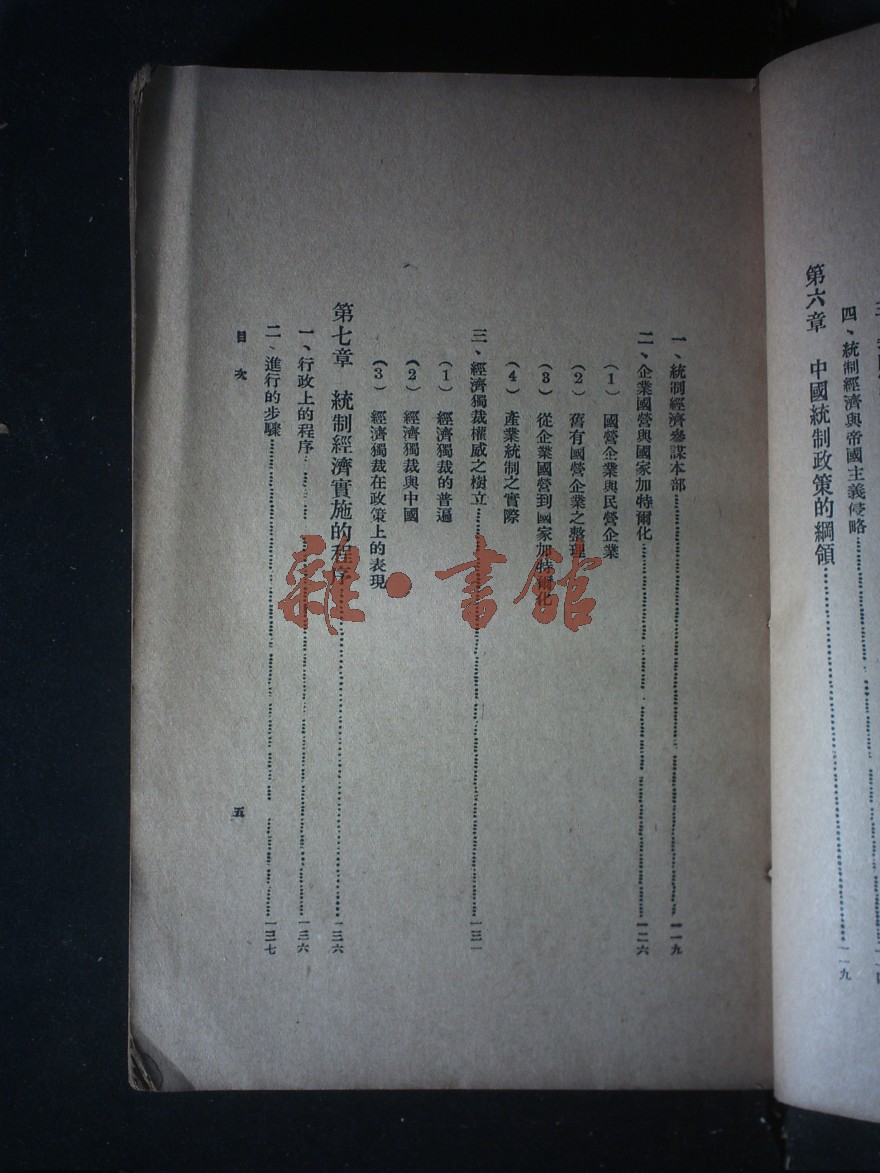 四、統制經濟與帝國主義侵略
第六章 中國統制政策的綱領……一一九
一、統制經濟參謀本部……一一九
二、企業國營與國家加特爾化……一二六
（1） 國營企業與民營企業
（2） 舊有國營企業之整理
（3） 從企業國營到國家加特爾化
（4） 產業統制之實際
三、經濟獨裁權威之樹立……一三一
（1） 經濟獨裁的普遍
（2） 經濟獨裁與中國
（3） 經濟獨裁在政策上的表現
第七章 統制經濟實施的程序……一三六
一、行政上的程序……一三六
二、進行的步驟……一三七
目次 五
雜·書館